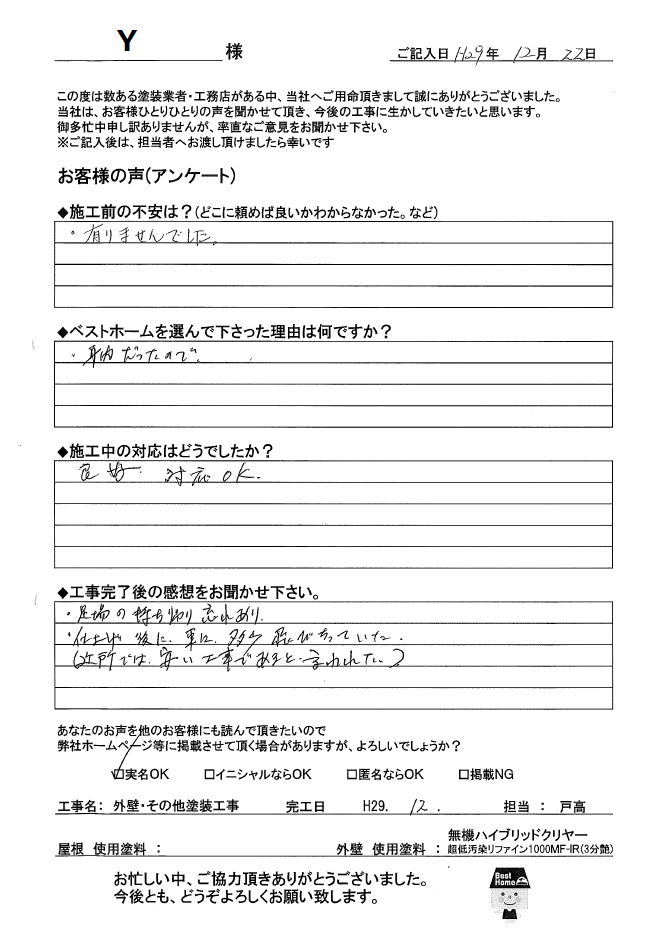 Y 様
ご記入日 H29年 12月 22日
この度は数ある塗装業者・工務店がある中、当社へご用命頂きまして誠にありがとうございました。
当社は、お客様ひとりひとりの声を聞かせて頂き、今後の工事に生かしていきたいと思います。
御多忙中申し訳ありませんが、率直なご意見をお聞かせ下さい。
※ご記入後は、担当者へお渡し頂けましたら幸いです
お客様の声(アンケート)
◆施工前の不安は?(どこに頼めば良いかわからなかった。など)
・有りませんでした。
◆ベストホームを選んで下さった理由は何ですか?
・身内だったので。
◆施工中の対応はどうでしたか?
良好 対応OK.
◆工事完了後の感想をお聞かせ下さい。
・足場の持ち帰り忘れあり.
・仕上げ後に、車に、多少飛びちっていた.
(近所では、安い工事であると、言われたい)
あなたのお声を他のお客様にも読んで頂きたいので
弊社ホームページ等に掲載させて頂く場合がありますが、よろしいでしょうか?
☑実名OK □イニシャルならOK □匿名ならOK □掲載NG
工事名: 外壁・その他塗装工事 完工日 H29. 12. 担当 : 戸高
無機ハイブリッドクリヤー
屋根 使用塗料 : 外壁 使用塗料 : 超低汚染リファイン1000MF-IR(3分艶)
お忙しい中、ご協力頂きありがとうございました。
今後とも、どうぞよろしくお願い致します。
Best Home